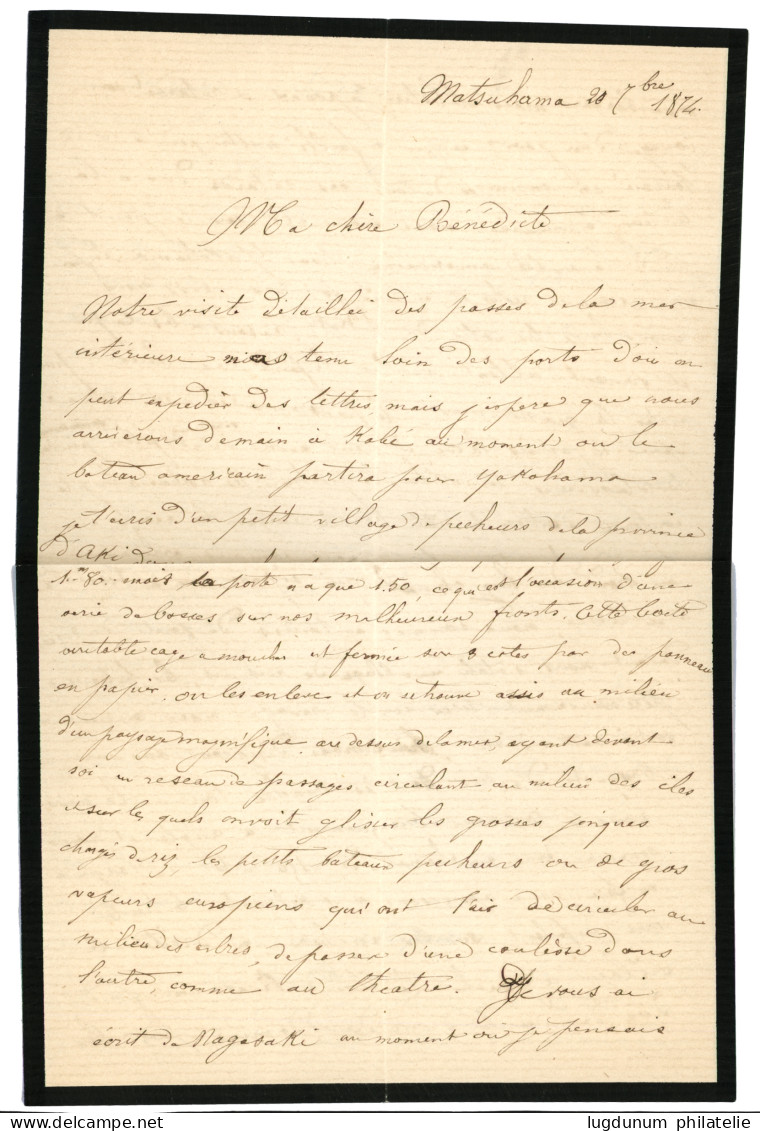 Matsuhama 20 7bre 1874.
Ma chère Bénédicte
Notre visite détaillée des passes de la mer
intérieure nous tenu loin des ports d'où on
peut expedier des lettres mais j'espere que nous
arriverons demain à Kobé au moment ou le
bateau americain partira pour Yokohama
je t'ecris d'un petit village de pecheurs de la province
d'Aki
1m80. mais la porte n'a que 1.50, ce qui est l'occasion d'une
serie de bosses sur nos malheureux fronts. Cette boite
veritable cage a mouches est fermée sur 3 cotes par des panneau
en papier. on les enleve et on se trouve assis au milieu
d'un paysage magnifique au dessus de la mer, ayant devant
soi un reseau de passages circulant au milieu des iles
et sur les quels on voit glisser les grosses jonques
chargés de riz, les petits bateaux pecheurs ou de gros
vapeurs européens qui ont l'air de circuler au
milieu des arbres, de passer d'une coulisse dans
l'autre, comme au theatre. Je vous ai
écrit de Nagasaki au moment où je pensais
lugdunum philatelie